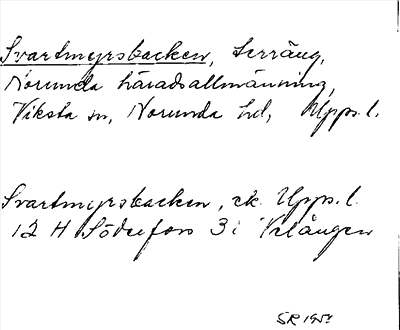 Svartmyrsbacken, terräng,
Norunda häradsallmänning,
Viksta sn, Norunda hd, Upps. l.
Svartmyrsbacken, ek. Upps. l.
12 H Söderfors 3 i
SR 195